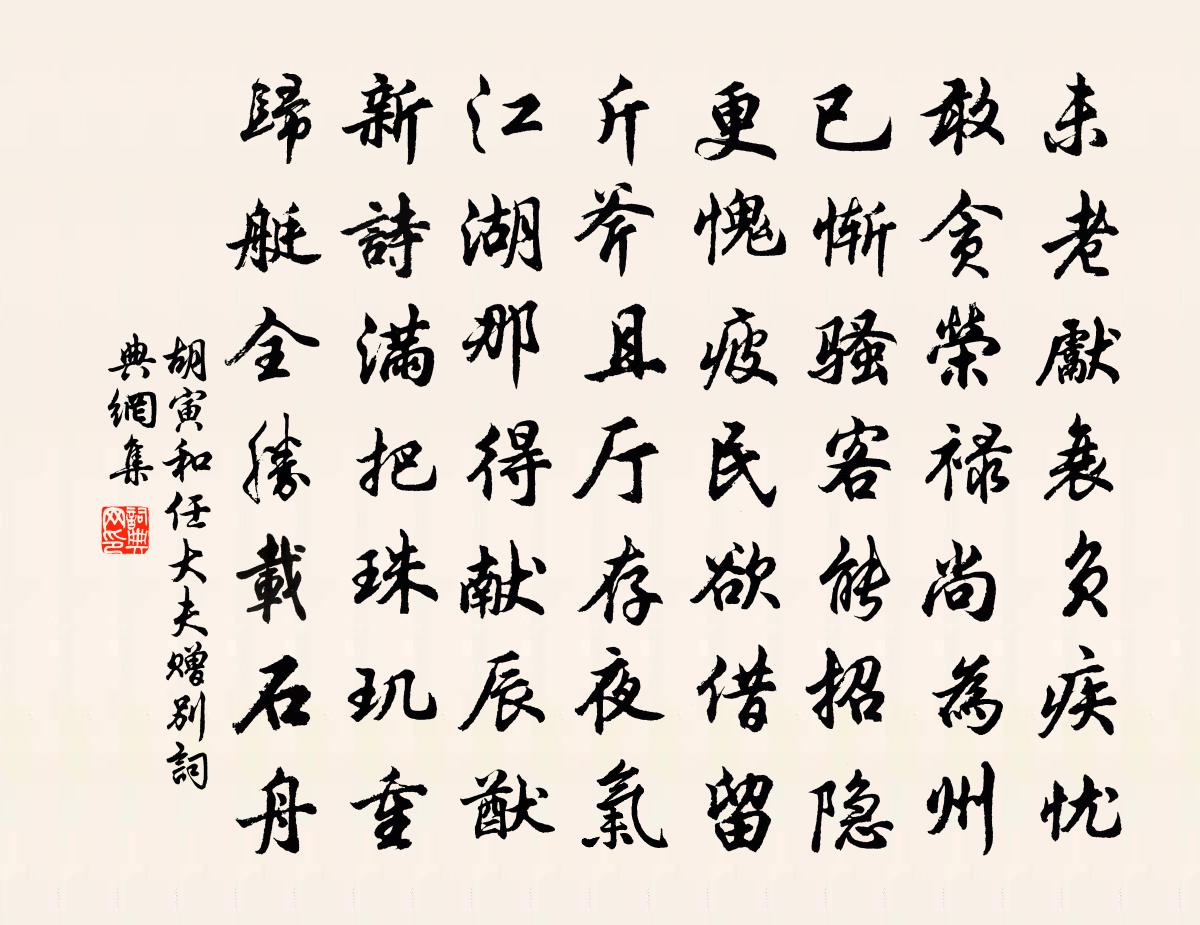 未老獻衰负疾忧
敢贪榮禄尚為州
已惭骚客能招隐
更愧疲民欲借留
斤斧且厅存夜氣
江湖那得献辰猷
新詩满把珠玑重
歸艇全勝載石舟
胡寅和任大夫赠别詞
典網集
詞典网印